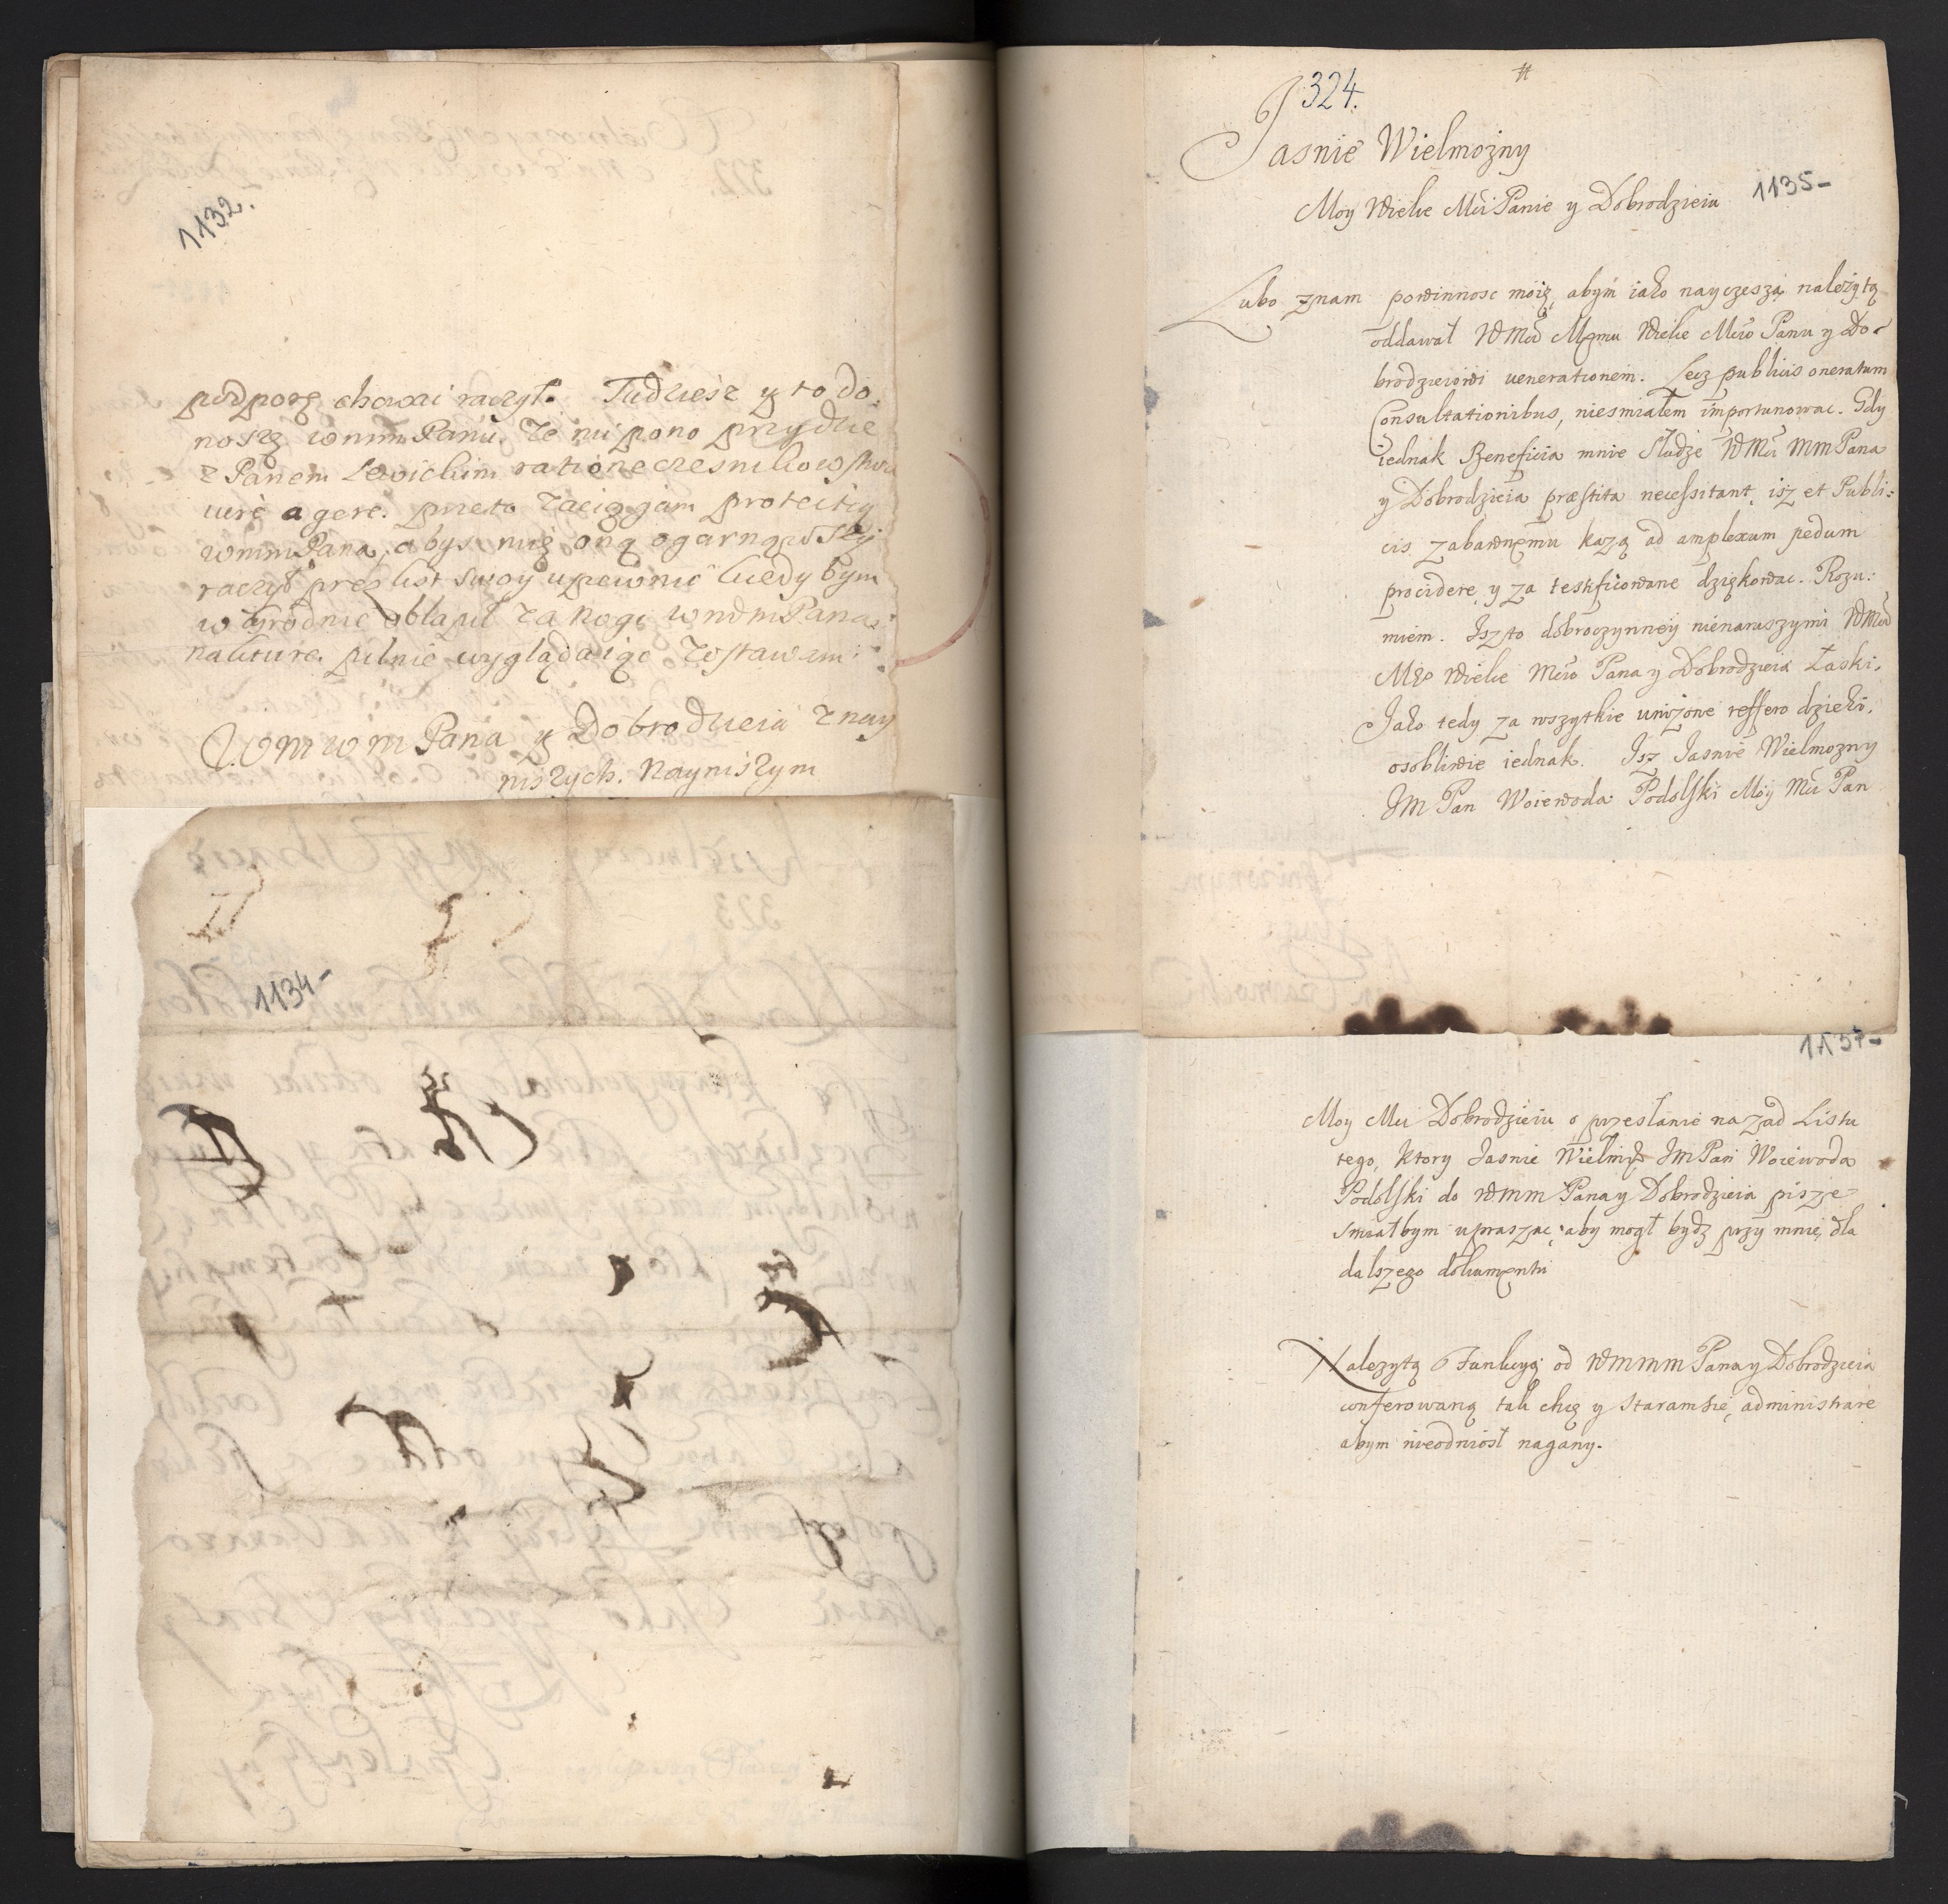 1132.
podporą chowai raczył. Tudziesz y to do
noszę wmm Panu. Ze mi pono przydzie
z Panem Lewickim ratione czesnikowstwa
iure agere. przeto zaciągam protectią
wmm Pana, abys mię oną ogarnąwszy
raczył przez list swoy upewnic kiedy bym
w Grodnie obłapił za nogi wmm Pana
pilnie wyglądaiąc zostawam
Wm wm Pana y Dobrodzieia z nay
niszych. Nayniszym
1134-
324.
Jasnie Wielmozny
1135-
Moy Wielce Mći Panie y Dobrodzieiu
Lubo znam powinnosc moię, abym iako nayczeszą należytą
oddawał WMći Memu Wielce Mćiw Panu y Do-
brodzieiowi venerationem. Lecz publicis oneratum
Consultationibus, niesmiałem importunowac. Gdy
iednak Beneficia mnie Słudze WMći MmPana
y Dobrodzieia præstita necessitant, isz et Publi:
cis zabawnemu każą ad amplexum pedum
procidere y za testificowane dziękowac. Rozu:
miem. Isz to dobroczynney nienaruszymi WMći
Mego Wielce Mćiw Pana y Dobrodzieia Łaski,
Jako tedy za wszytkie unizone reffero dzięki,
osobliwie iednak. Isz Jasnie Wielmozny
JM Pan Woiewoda Podolski Moy Mći Pan
1137-
Moy Mći Dobrodzieiu o przesłanie nazad Listu
tego, ktory Jasnie Wielmży JmPan Woiewoda
Podolski do Wmm Pana y Dobrodzieia pisze
smiałbym upraszac, aby mogł bydz przy mnie, dla
dalszego dokumentu
Nalezytą Funkcyą od Wmmm Pana y Dobrodzieia
conferowaną tak chcę y staram się, administrare
abym nieodniosł nagany.